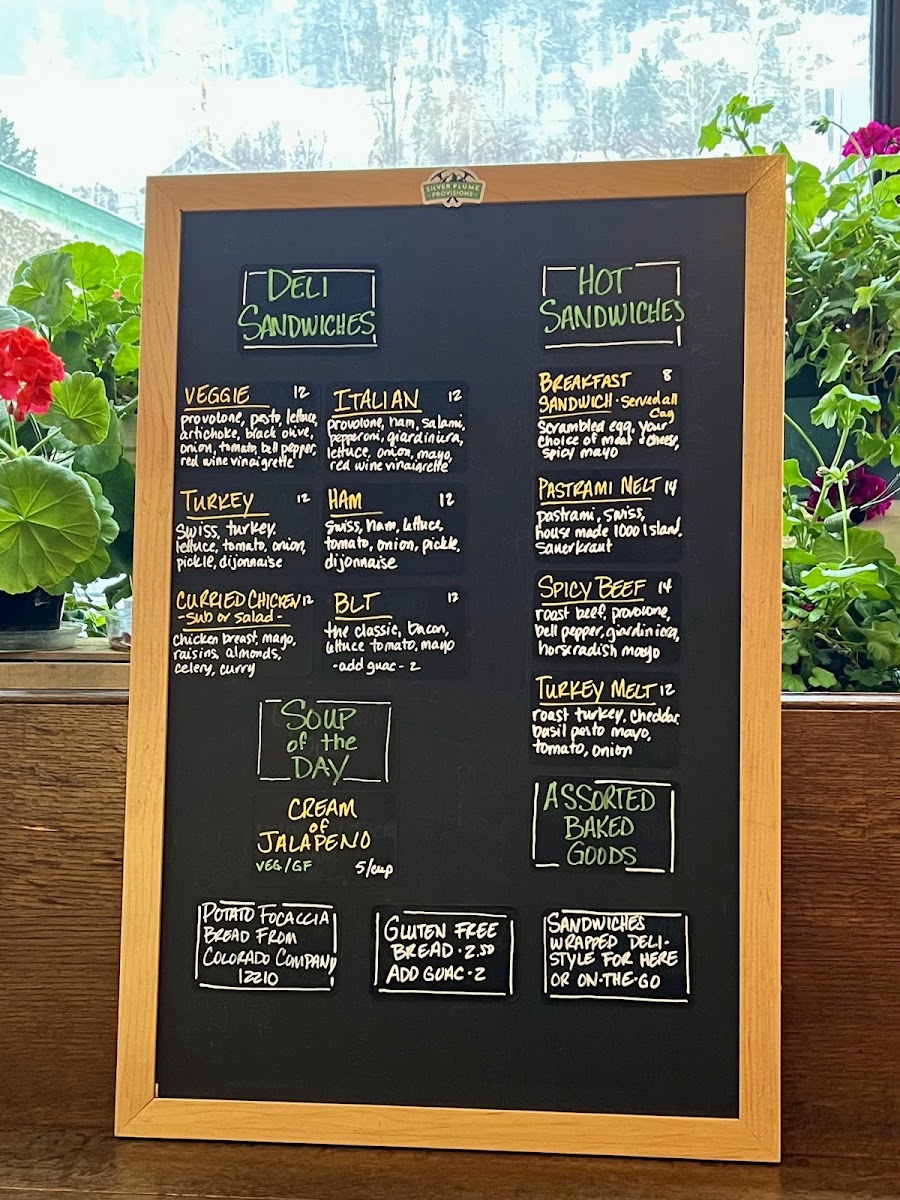 SILVER PLUME
PROVISIONS
DELI
SANDWICHES
VEGGIE 12
provolone, pesto, lettuce,
artichoke, black olive,
onion, tomato, bell pepper,
red wine vinaigrette
ITALIAN 12
provolone, ham, salami,
pepperoni, giardiniera,
lettuce, onion, mayo,
red wine vinaigrette
TURKEY 12
Swiss, turkey,
lettuce, tomato, onion,
pickle, dijonnaise
HAM 12
swiss, ham, lettuce,
tomato, onion, pickle,
dijonnaise
CURRIED CHICKEN 12
- Sub or Salad -
chicken breast, mayo,
raisins, almonds,
celery, curry
BLT 12
the classic, bacon,
lettuce tomato, mayo
- add guac - 2
SOUP
of the
DAY
CREAM
of
JALAPENO
VEG/GF 5/cup
HOT
SANDWICHES
BREAKFAST 8
SANDWICH · Served all
Scrambled egg, your
choice of meat & cheese,
spicy mayo
PASTRAMI MELT 14
pastrami, swiss,
house made 1000 island,
sauerkraut
SPICY BEEF 14
roast beef, provolone,
bell pepper, giardiniera,
horseradish mayo
TURKEY MELT 12
roast turkey, cheddar,
basil pesto mayo,
tomato, onion
ASSORTED
BAKED
GOODS
POTATO FOCACCIA
BREAD FROM
COLORADO COMPANY
12210
GLUTEN FREE
BREAD · 2.50
ADD GUAC · 2
SANDWICHES
WRAPPED DELI-
STYLE FOR HERE
OR ON-THE-GO